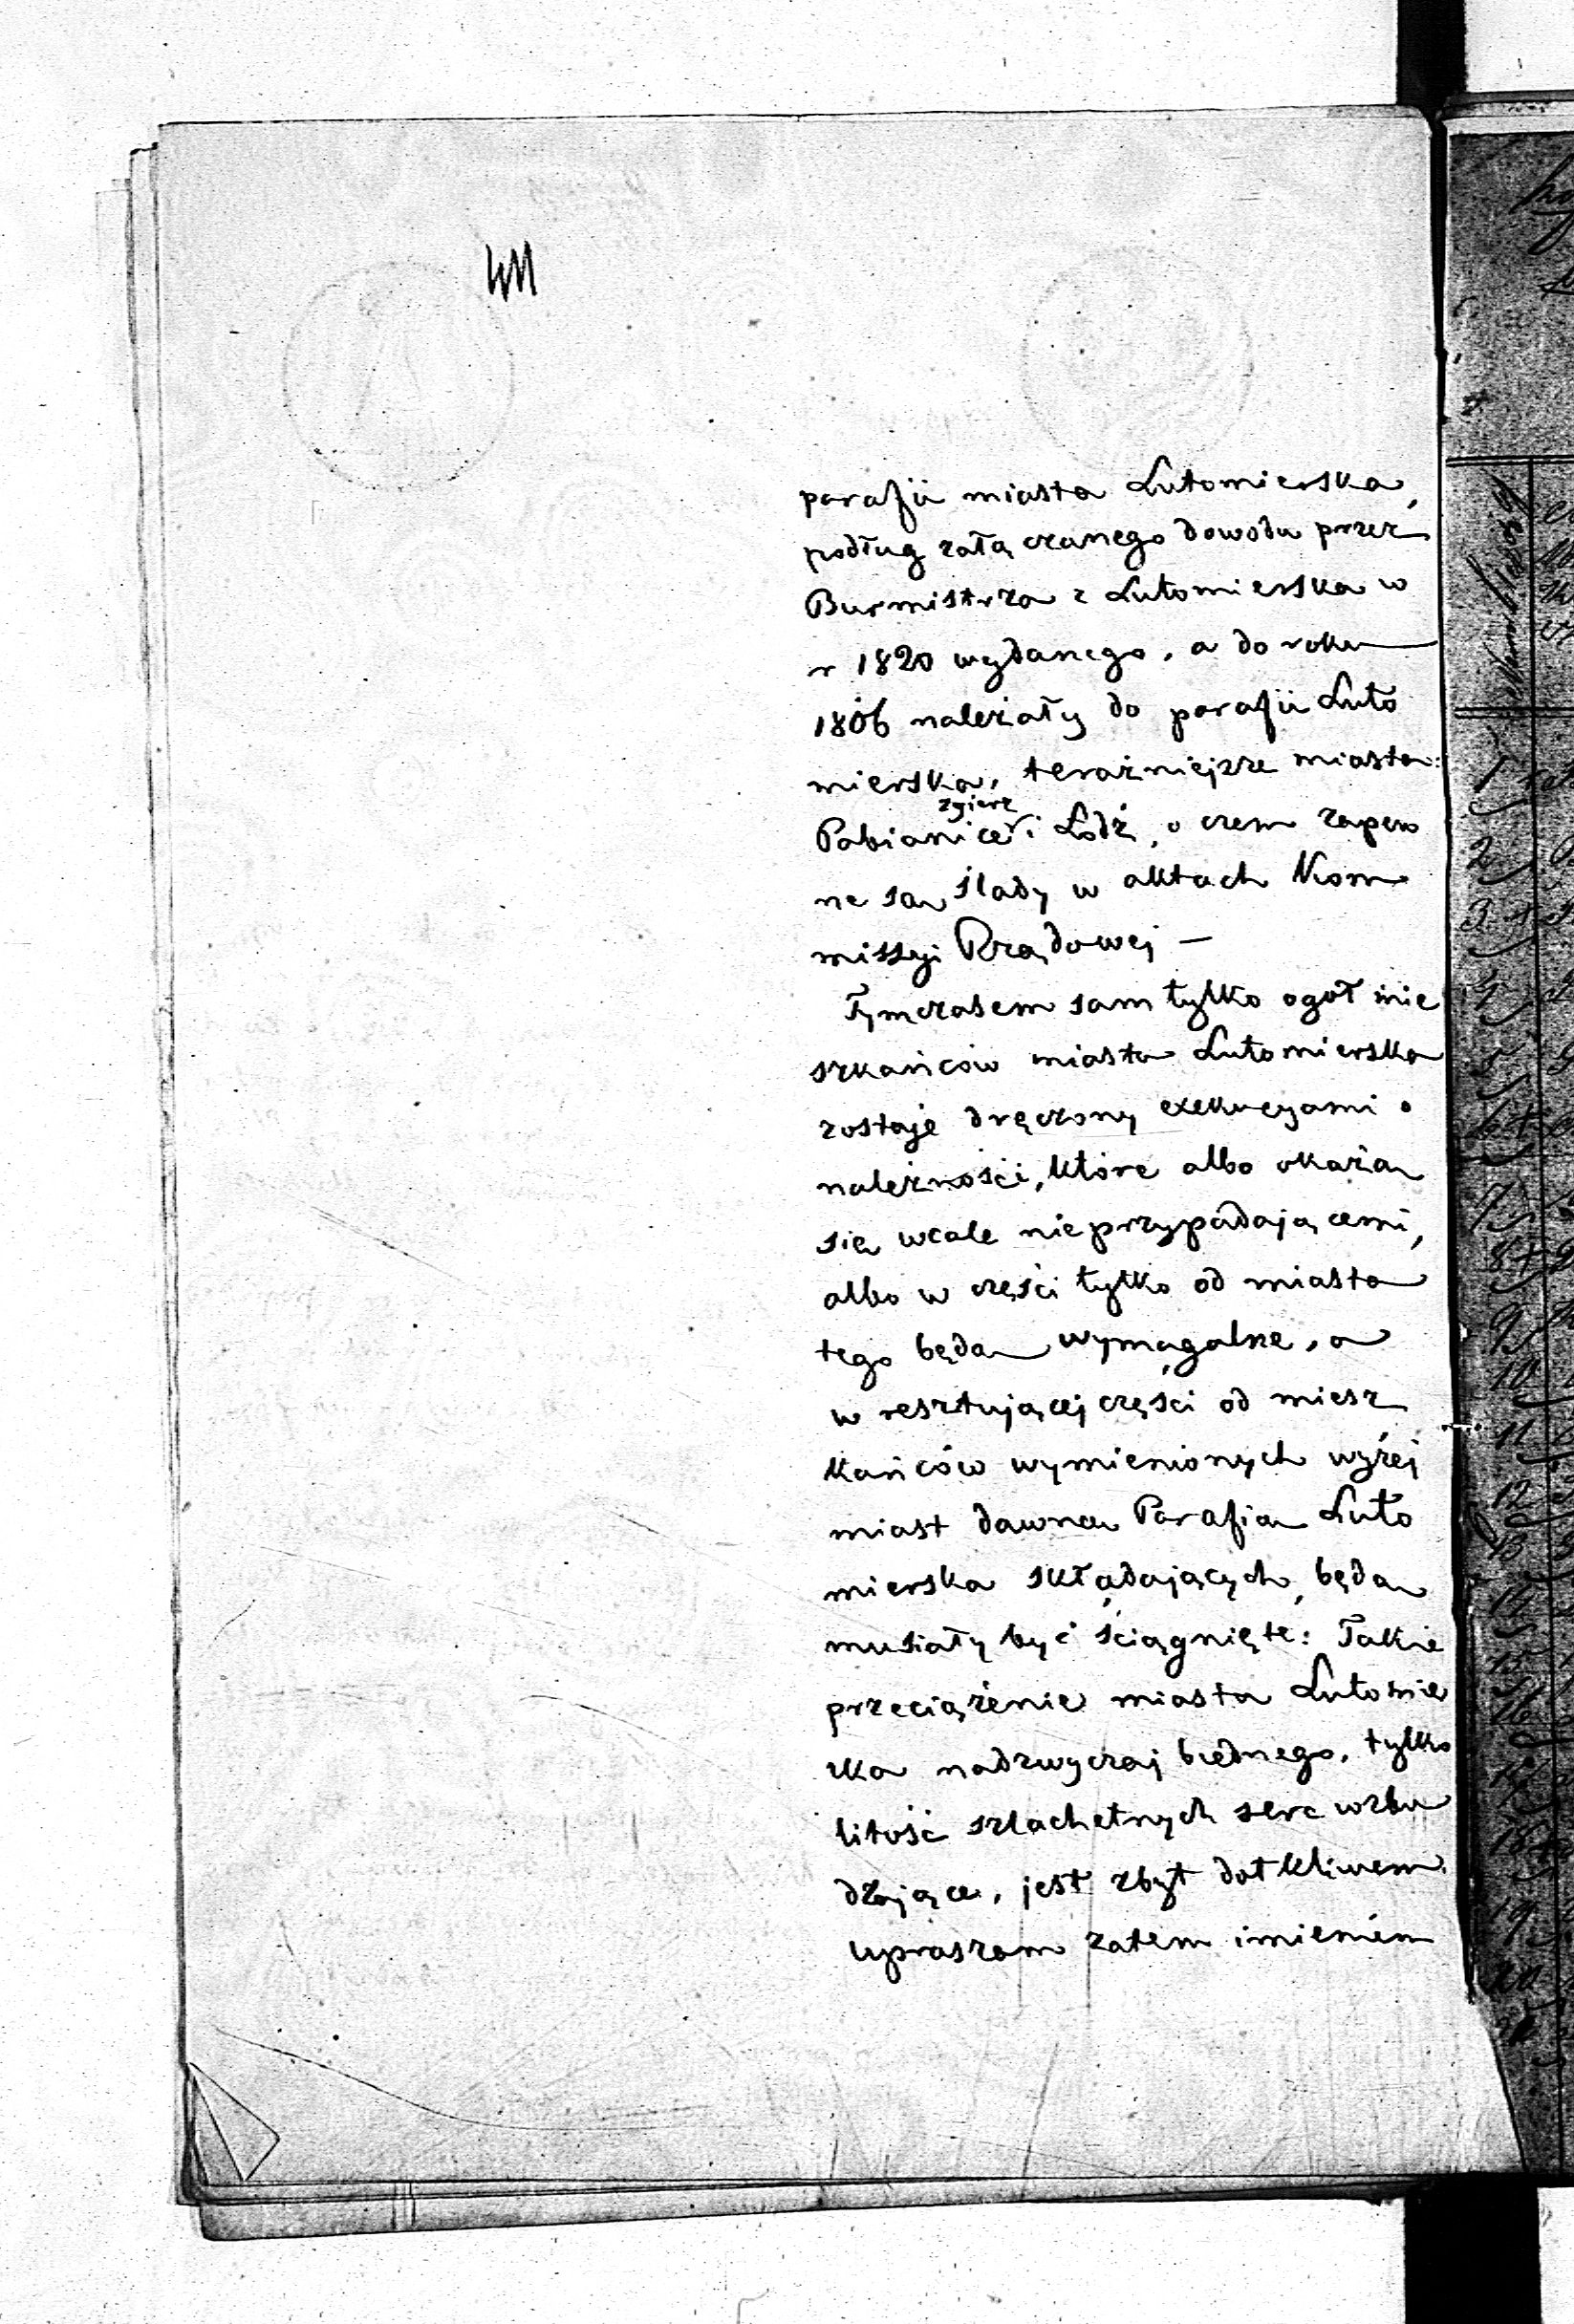 parafii miasta Lutomierska,
podług załączanego dowodu przez
Burmistrza z Lutomierska w
r 1820 wydanego, a do roku
1806 należały do parafii Luto
mierska, teraźniejsze miasta:
Zgierz
Pabianice i Łódź, o czem zapew
ne są ślady w aktach Kom
missyi Rządowej —
Tymczasem sam tylko ogół mie
szkańców miasta Lutomierska
zostaje dręczony exekucyami o
należności, które albo okażą
się wcale nieprzypadającemi,
albo w części tylko od miasta
tego będą wymagalne, a
w resztującej części od miesz
kańców wymienionych wyżej
miast dawną Parafią Luto
mierska składających, będą
musiały być ściągnięte: Takie
przeciążenie miasta Lutomier
ska nadzwyczaj biednego, tylko
litość szlachetnych serc wzbu
dzające, jest zbyt dotkliwem.
Upraszam zatem imieniem
1
2
3
4
5
7
8
9
10
11
12
19
20